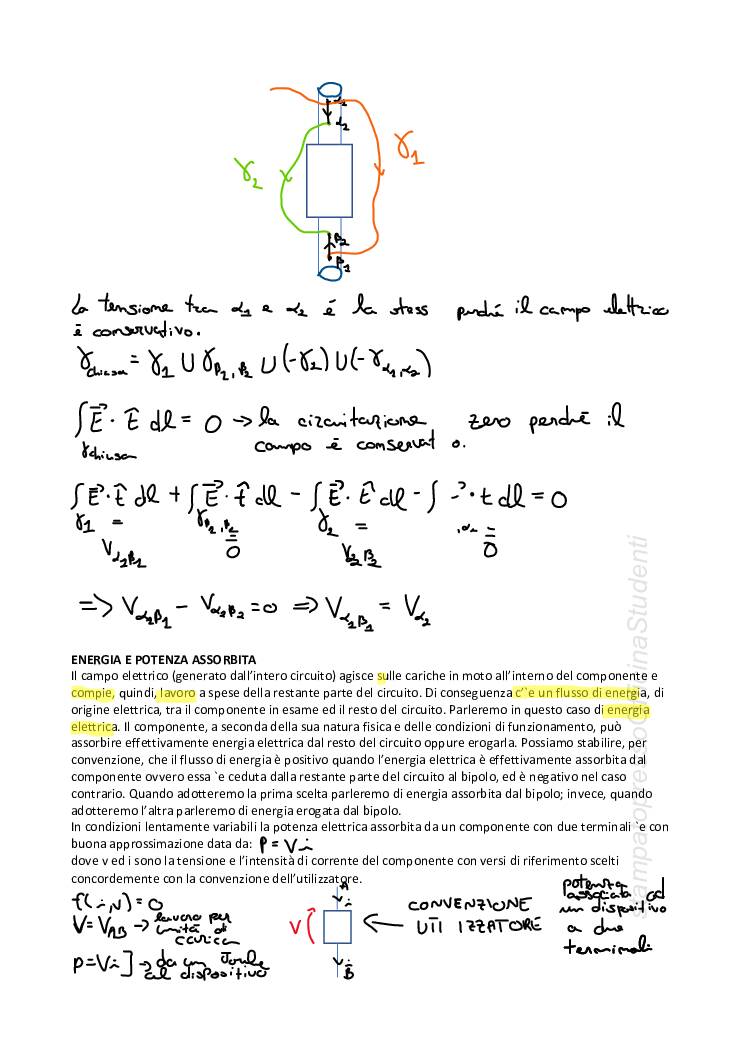 α1
α2
γ1
γ2
β2
β1
La tensione tra α1 e α2 è la stess perché il campo elettrico
è conservativo.
γchiusa = γ1 ∪ γβ1,β2 ∪ (-γ2) ∪ (-γα1,α2)
∫ E⃗ · t̂ dl = 0 → la circuitazione zero perché il
γchiusa campo è conservat o.
∫ E⃗ · t̂ dl + ∫ E⃗ · t̂ dl - ∫ E⃗ · t̂ dl - ∫ → · t dl = 0
γ1 = γβ1,β2 = γ2 = ,α2 =
Vα1β1 0 Vα2β2 0
=> Vα1β1 - Vα2β2 = 0 => Vα1β1 = Vα2
ENERGIA E POTENZA ASSORBITA
Il campo elettrico (generato dall’intero circuito) agisce sulle cariche in moto all’interno del componente e
compie, quindi, lavoro a spese della restante parte del circuito. Di conseguenza c'`e un flusso di energia, di
origine elettrica, tra il componente in esame ed il resto del circuito. Parleremo in questo caso di energia
elettrica. Il componente, a seconda della sua natura fisica e delle condizioni di funzionamento, può
assorbire effettivamente energia elettrica dal resto del circuito oppure erogarla. Possiamo stabilire, per
convenzione, che il flusso di energia è positivo quando l’energia elettrica è effettivamente assorbita dal
componente ovvero essa `e ceduta dalla restante parte del circuito al bipolo, ed è negativo nel caso
contrario. Quando adotteremo la prima scelta parleremo di energia assorbita dal bipolo; invece, quando
adotteremo l’altra parleremo di energia erogata dal bipolo.
In condizioni lentamente variabili la potenza elettrica assorbita da un componente con due terminali `e con
buona approssimazione data da: P = Vi
dove v ed i sono la tensione e l’intensità di corrente del componente con versi di riferimento scelti
concordemente con la convenzione dell’utilizzatore.
f(i,v) = 0
V = VAB → lavoro per
unità di
carica
p = Vi] → da un Joule
al dispositivo
A
i
V
i
B
← CONVENZIONE
UTI IZZATORE
potenza
associata ad
un dispositivo
a due
terminali